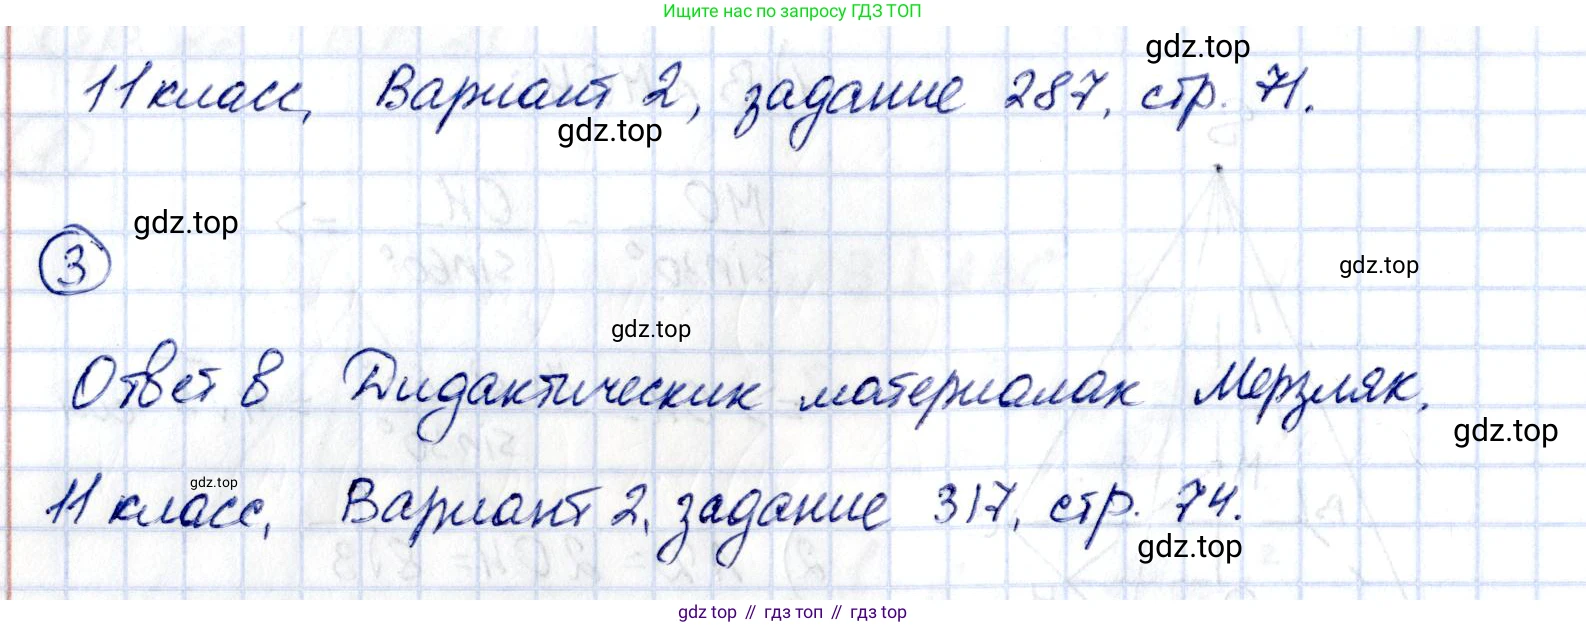 Ищите нас по запросу ГДЗ ТОП
gdz.top
11 класс, Вариант 2, задание 287, стр. 71.
gdz.top
gdz.top
3
gdz.top
gdz.top
Ответ в Дидактических материалах Мерзляк.
gdz.top
gdz.top
11 класс, Вариант 2, задание 317, стр. 74.
gdz.top
gdz.top // гдз топ // гдз top